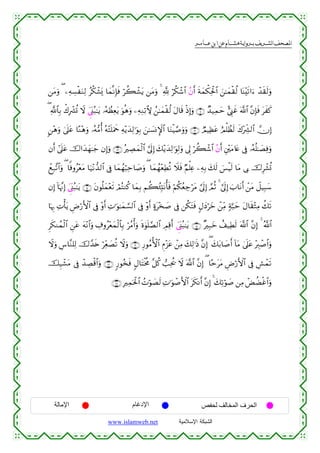 المصحف الشريف برواية هشام عن ابن عامر
وَلَقَدْ ءَاتَيْنَا لُقْمَٰنَ ٱلْحِكْمَةَ أَنُ ٱشْكُرْ لِلَّهِ ۚ وَمَن يَشْكُرْ فَإِنَّمَا يَشْكُرُ لِنَفْسِهِۦ ۖ وَمَن
كَفَرَ فَإِنَّ ٱللَّهَ غَنِىٌّ حَمِيدٌ وَإِذْ قَالَ لُقْمَٰنُ لِٱبْنِهِۦ وَهُوَ يَعِظُهُۥ يَٰبُنَىِّ لَا تُشْرِكْ بِٱللَّهِ ۖ
إِنَّ ٱلشِّرْكَ لَظُلْمٌ عَظِيمٌ وَوَصَّيْنَا ٱلْإِنسَٰنَ بِوَٰلِدَيْهِ حَمَلَتْهُ أُمُّهُۥ وَهْنًا عَلَىٰ وَهْنٍ
وَفِصَٰلُهُۥ فِى عَامَيْنِ أَنُ ٱشْكُرْ لِى وَلِوَٰلِدَيْكَ إِلَىَّ ٱلْمَصِيرُ وَإِن جَٰهَدَاكَ عَلَىٰٓ أَن
تُشْرِكَ بِى مَا لَيْسَ لَكَ بِهِۦ عِلْمٌ فَلَا تُطِعْهُمَا ۖ وَصَاحِبْهُمَا فِى ٱلدُّنْيَا مَعْرُوفًا ۖ وَٱتَّبِعْ
سَبِيلَ مَنْ أَنَابَ إِلَىَّ ۚ ثُمَّ إِلَىَّ مَرْجِعُكُمْ فَأُنَبِّئُكُم بِمَا كُنتُمْ تَعْمَلُونَ يَٰبُنَىِّ إِنَّهَآ إِن
تَكُ مِثْقَالَ حَبَّةٍ مِّنْ خَرْدَلٍ فَتَكُن فِى صَخْرَةٍ أَوْ فِى ٱلسَّمَٰوَٰتِ أَوْ فِى ٱلْأَرْضِ يَأْتِ بِهَا
ٱللَّهُ ۚ إِنَّ ٱللَّهَ لَطِيفٌ خَبِيرٌ يَٰبُنَىِّ أَقِمِ ٱلصَّلَوٰةَ وَأْمُرْ بِٱلْمَعْرُوفِ وَٱنْهَ عَنِ ٱلْمُنكَرِ
وَٱصْبِرْ عَلَىٰ مَآ أَصَابَكَ ۖ إِنَّ ذَٰلِكَ مِنْ عَزْمِ ٱلْأُمُورِ وَلَا تُصَعِّرْ خَدَّكَ لِلنَّاسِ وَلَا
تَمْشِ فِى ٱلْأَرْضِ مَرَحًا ۖ إِنَّ ٱللَّهَ لَا يُحِبُّ كُلَّ مُخْتَالٍ فَخُورٍ وَٱقْصِدْ فِى مَشْيِكَ
وَٱغْضُضْ مِن صَوْتِكَ ۚ إِنَّ أَنكَرَ ٱلْأَصْوَٰتِ لَصَوْتُ ٱلْحَمِيرِ
الحرف المخالف لحفص الإدغام الإمالة
الشبكة الإسلامية www.islamweb.net